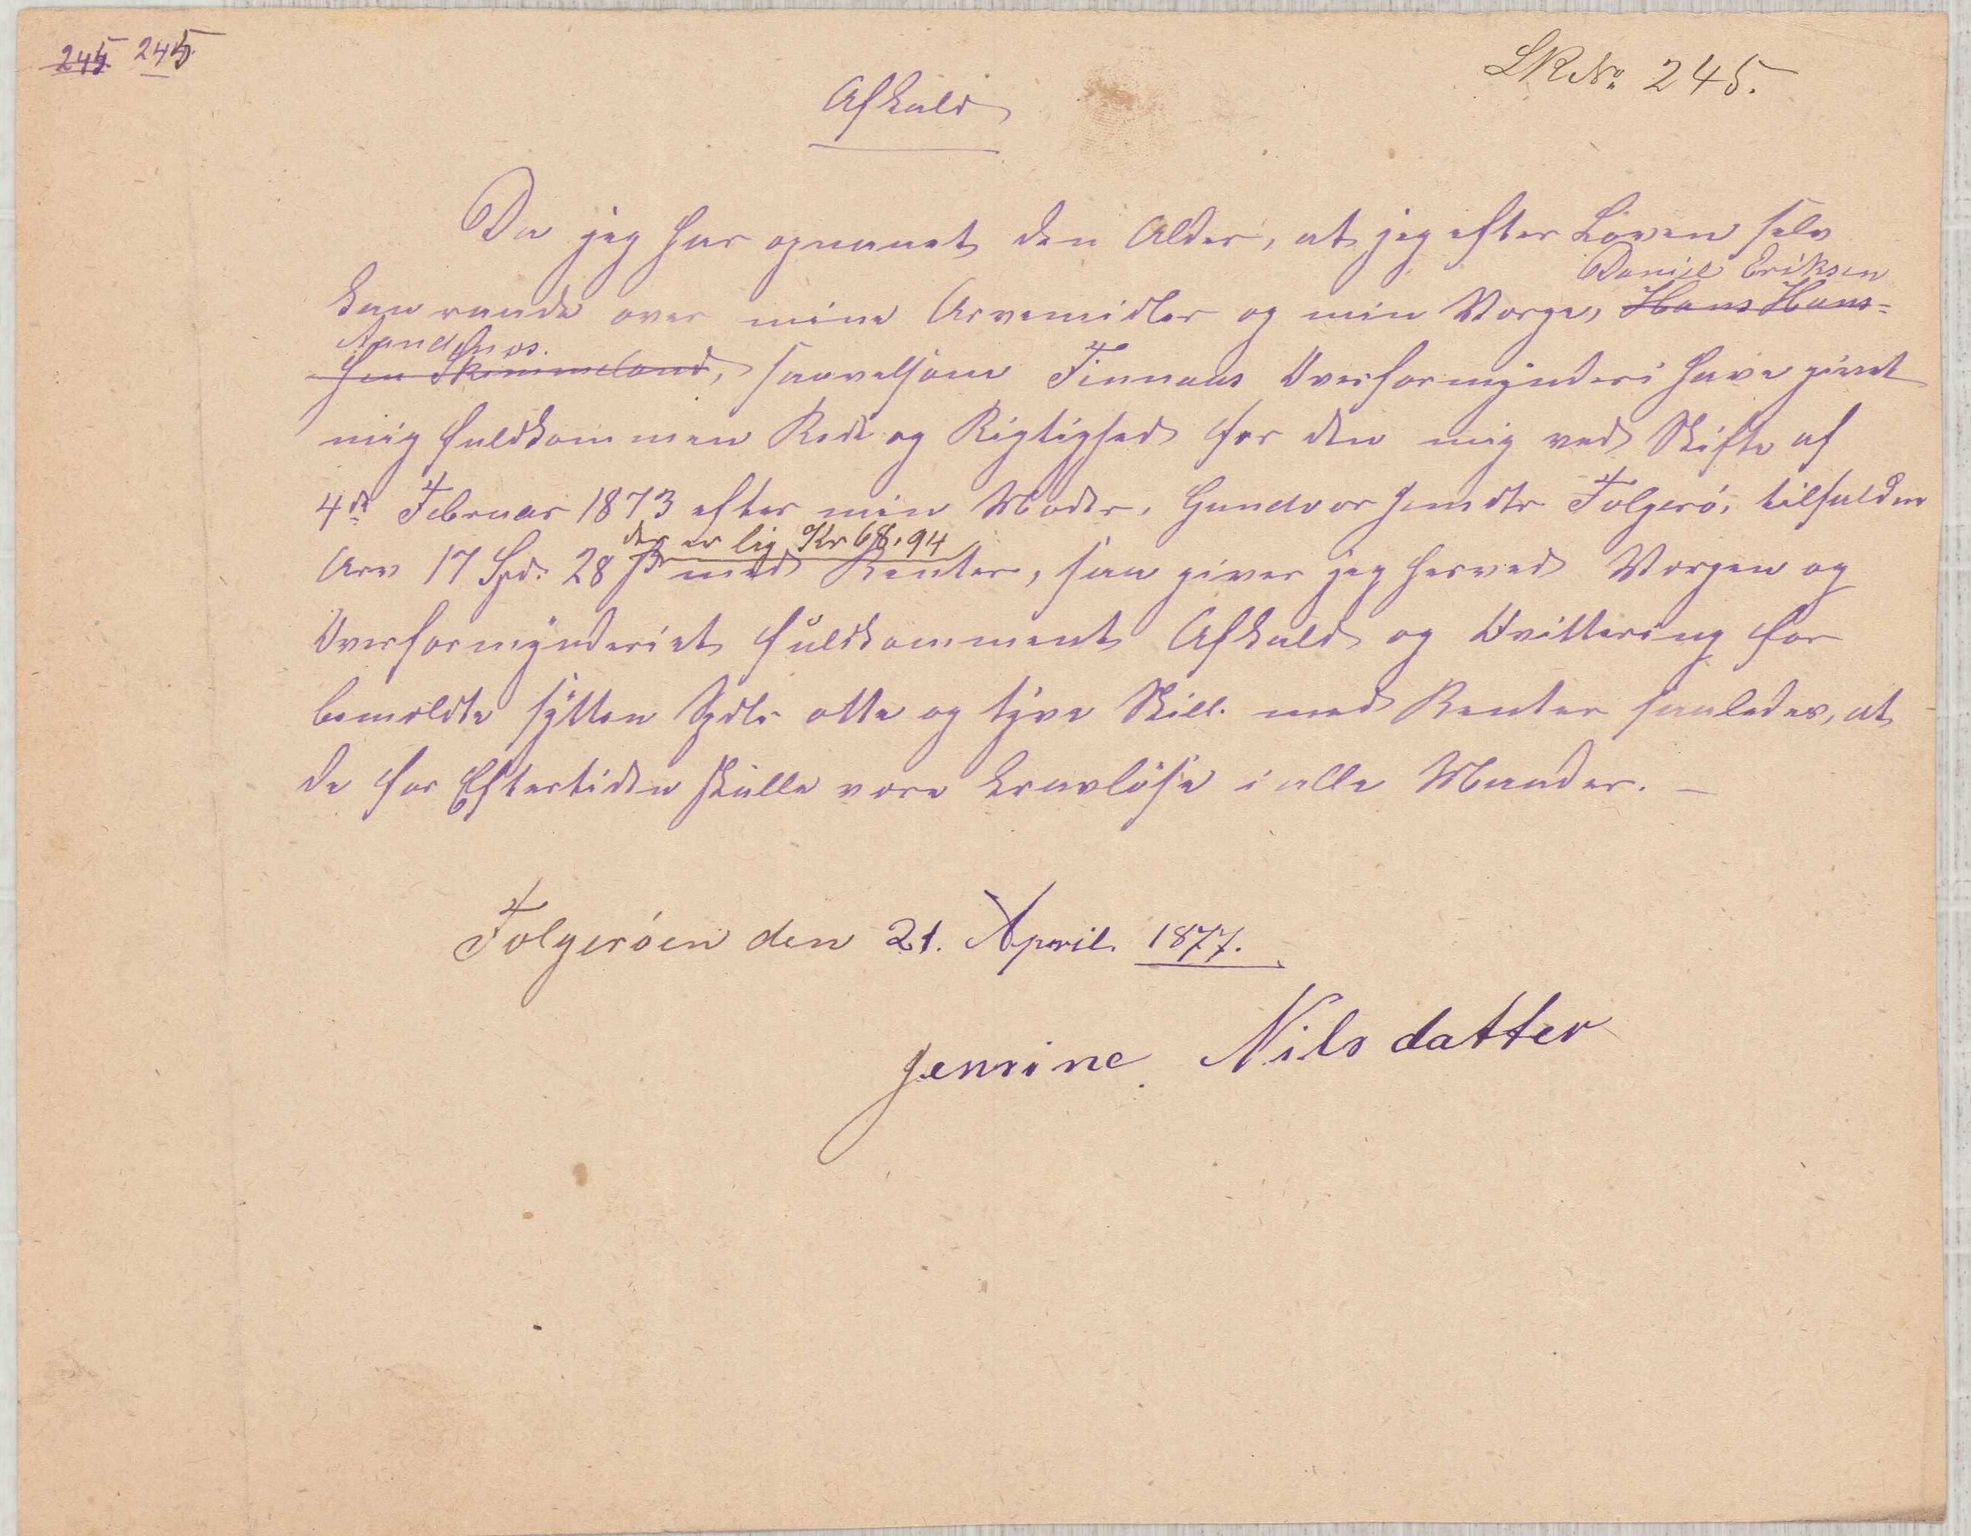 245 245
LR No 245.
Afkald
Da jeg har opnaaet den Alder, at jeg efter Loven selv
Daniel Eriksen
kan raade over mine Arvemidler og min Værge, Hans Han-
sen Skimmeland, saavelsom Finnaas Overformynderi have givet
mig fuldkommen Rede og Rigtighed for den mig ved Skifte af
4de Februar 1873 efter min Moder, Gundvor Jensdtr Folgerö, tilfaldne
der er lig Kr 68,94
Arv 17 Spd. 28 ß med Renter, saa giver jeg herved Værgen og
Overformynderiet fuldkomment Afkald og Kvittering for
bemeldte sytten Spdlr otte og tyve Skill. med Renter saaledes, at
de for Eftertiden skulle være kravlöse i alle Maader. —
Folgeröen den 21. April 1877.
Jensine Nilsdatter